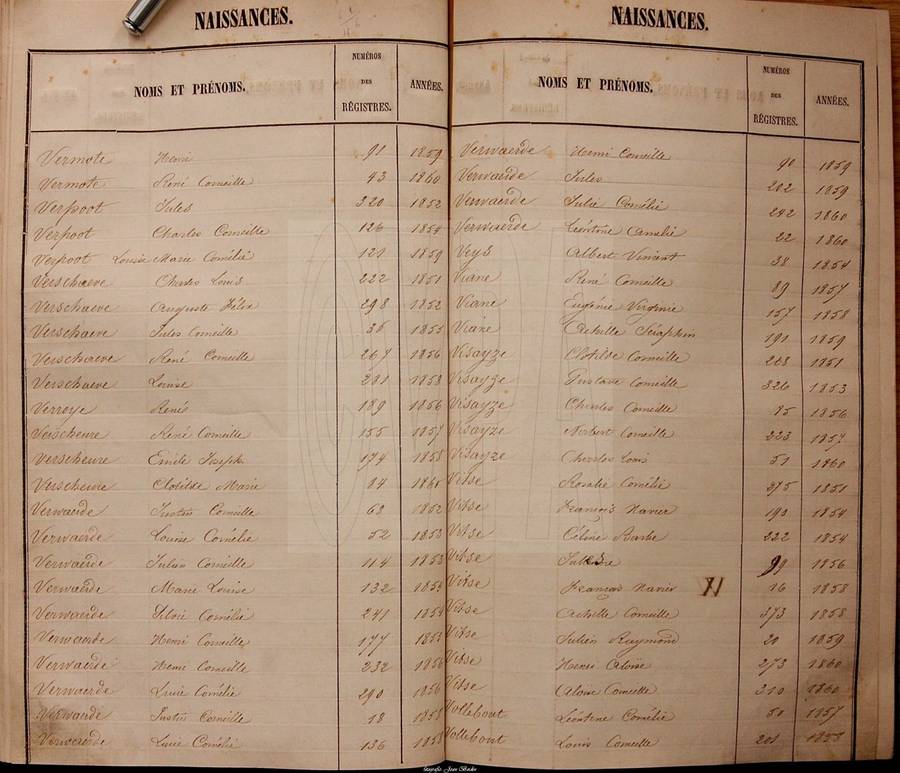 NAISSANCES.
NOMS ET PRÉNOMS. NUMÉROS DES RÉGISTRES. ANNÉES.
Vermote Henri 91 1859
Vermote René Corneille 43 1860
Verpoot Jules 320 1852
Verpoot Charles Corneille 126 1854
Verpoot Louise Marie Cornélie 121 1859
Verschaeve Charles Louis 222 1851
Verschaeve Auguste Félix 298 1852
Verschaeve Jules Corneille 36 1855
Verschaeve René Corneille 267 1856
Verschaeve Louise 1858
Verroye René 189 1856
Verscheure René Corneille 155 1857
Verscheure Emile Joseph 174 1858
Verscheure Clotilde Marie 14
Verwaerde Justin Corneille 63 1852
Verwaerde Louise Cornélie 52 1853
Verwaerde Julien Corneille 114 1853
Verwaerde Marie Louise 132
Verwaerde Silvie Cornélie 241 1854
Verwaerde Henri Corneille 177
Verwaerde Henri Corneille 232 1856
Verwaerde Lucie Cornélie 290 1856
Verwaerde Justin Corneille 18 1858
Verwaerde Lucie Cornélie 136 1858
NAISSANCES.
NOMS ET PRÉNOMS. NUMÉROS DES RÉGISTRES. ANNÉES.
Verwaerde Henri Corneille 90 1859
Verwaerde Jules 202 1859
Verwaerde Julie Cornélie 242 1860
Verwaerde Léontine Amélie 22 1860
Veys Albert Vincent 38 1854
Viane René Corneille 89 1857
Viane Eugénie Virginie 157 1858
Viane Achille Séraphin 191 1859
Visayze Clotilde Corneille 208 1851
Visayze Gustave Corneille 326 1853
Visayze Charles Corneille 85 1856
Visayze Norbert Corneille 223 1857
Visayze Charles Louis 51 1860
Vitse Rosalie Cornélie 275 1851
Vitse François Xavier 190 1854
Vitse Céline Barbe 222 1854
Vitse 1856
Vitse François Xavier 16 1858
Vitse Achille Corneille 373 1858
Vitse Julien Raymond 20 1859
Vitse Henri Aloïse 273 1860
Vitse Aloïse Corneille 310 1860
Vollebout Léontine Cornélie 50 1857
Vollebout Louis Corneille 201 1858